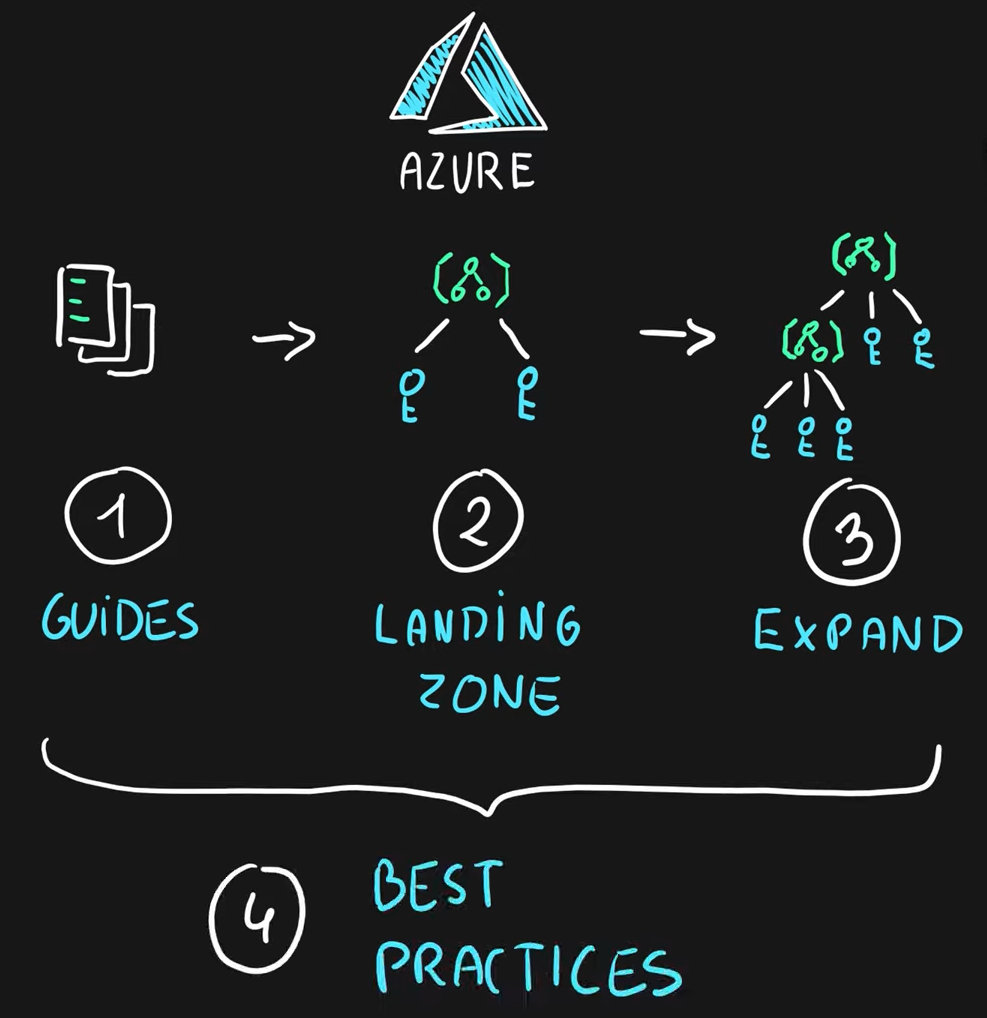 AZURE
1
2
3
GUIDES
LANDING
ZONE
EXPAND
4
BEST
PRACTICES